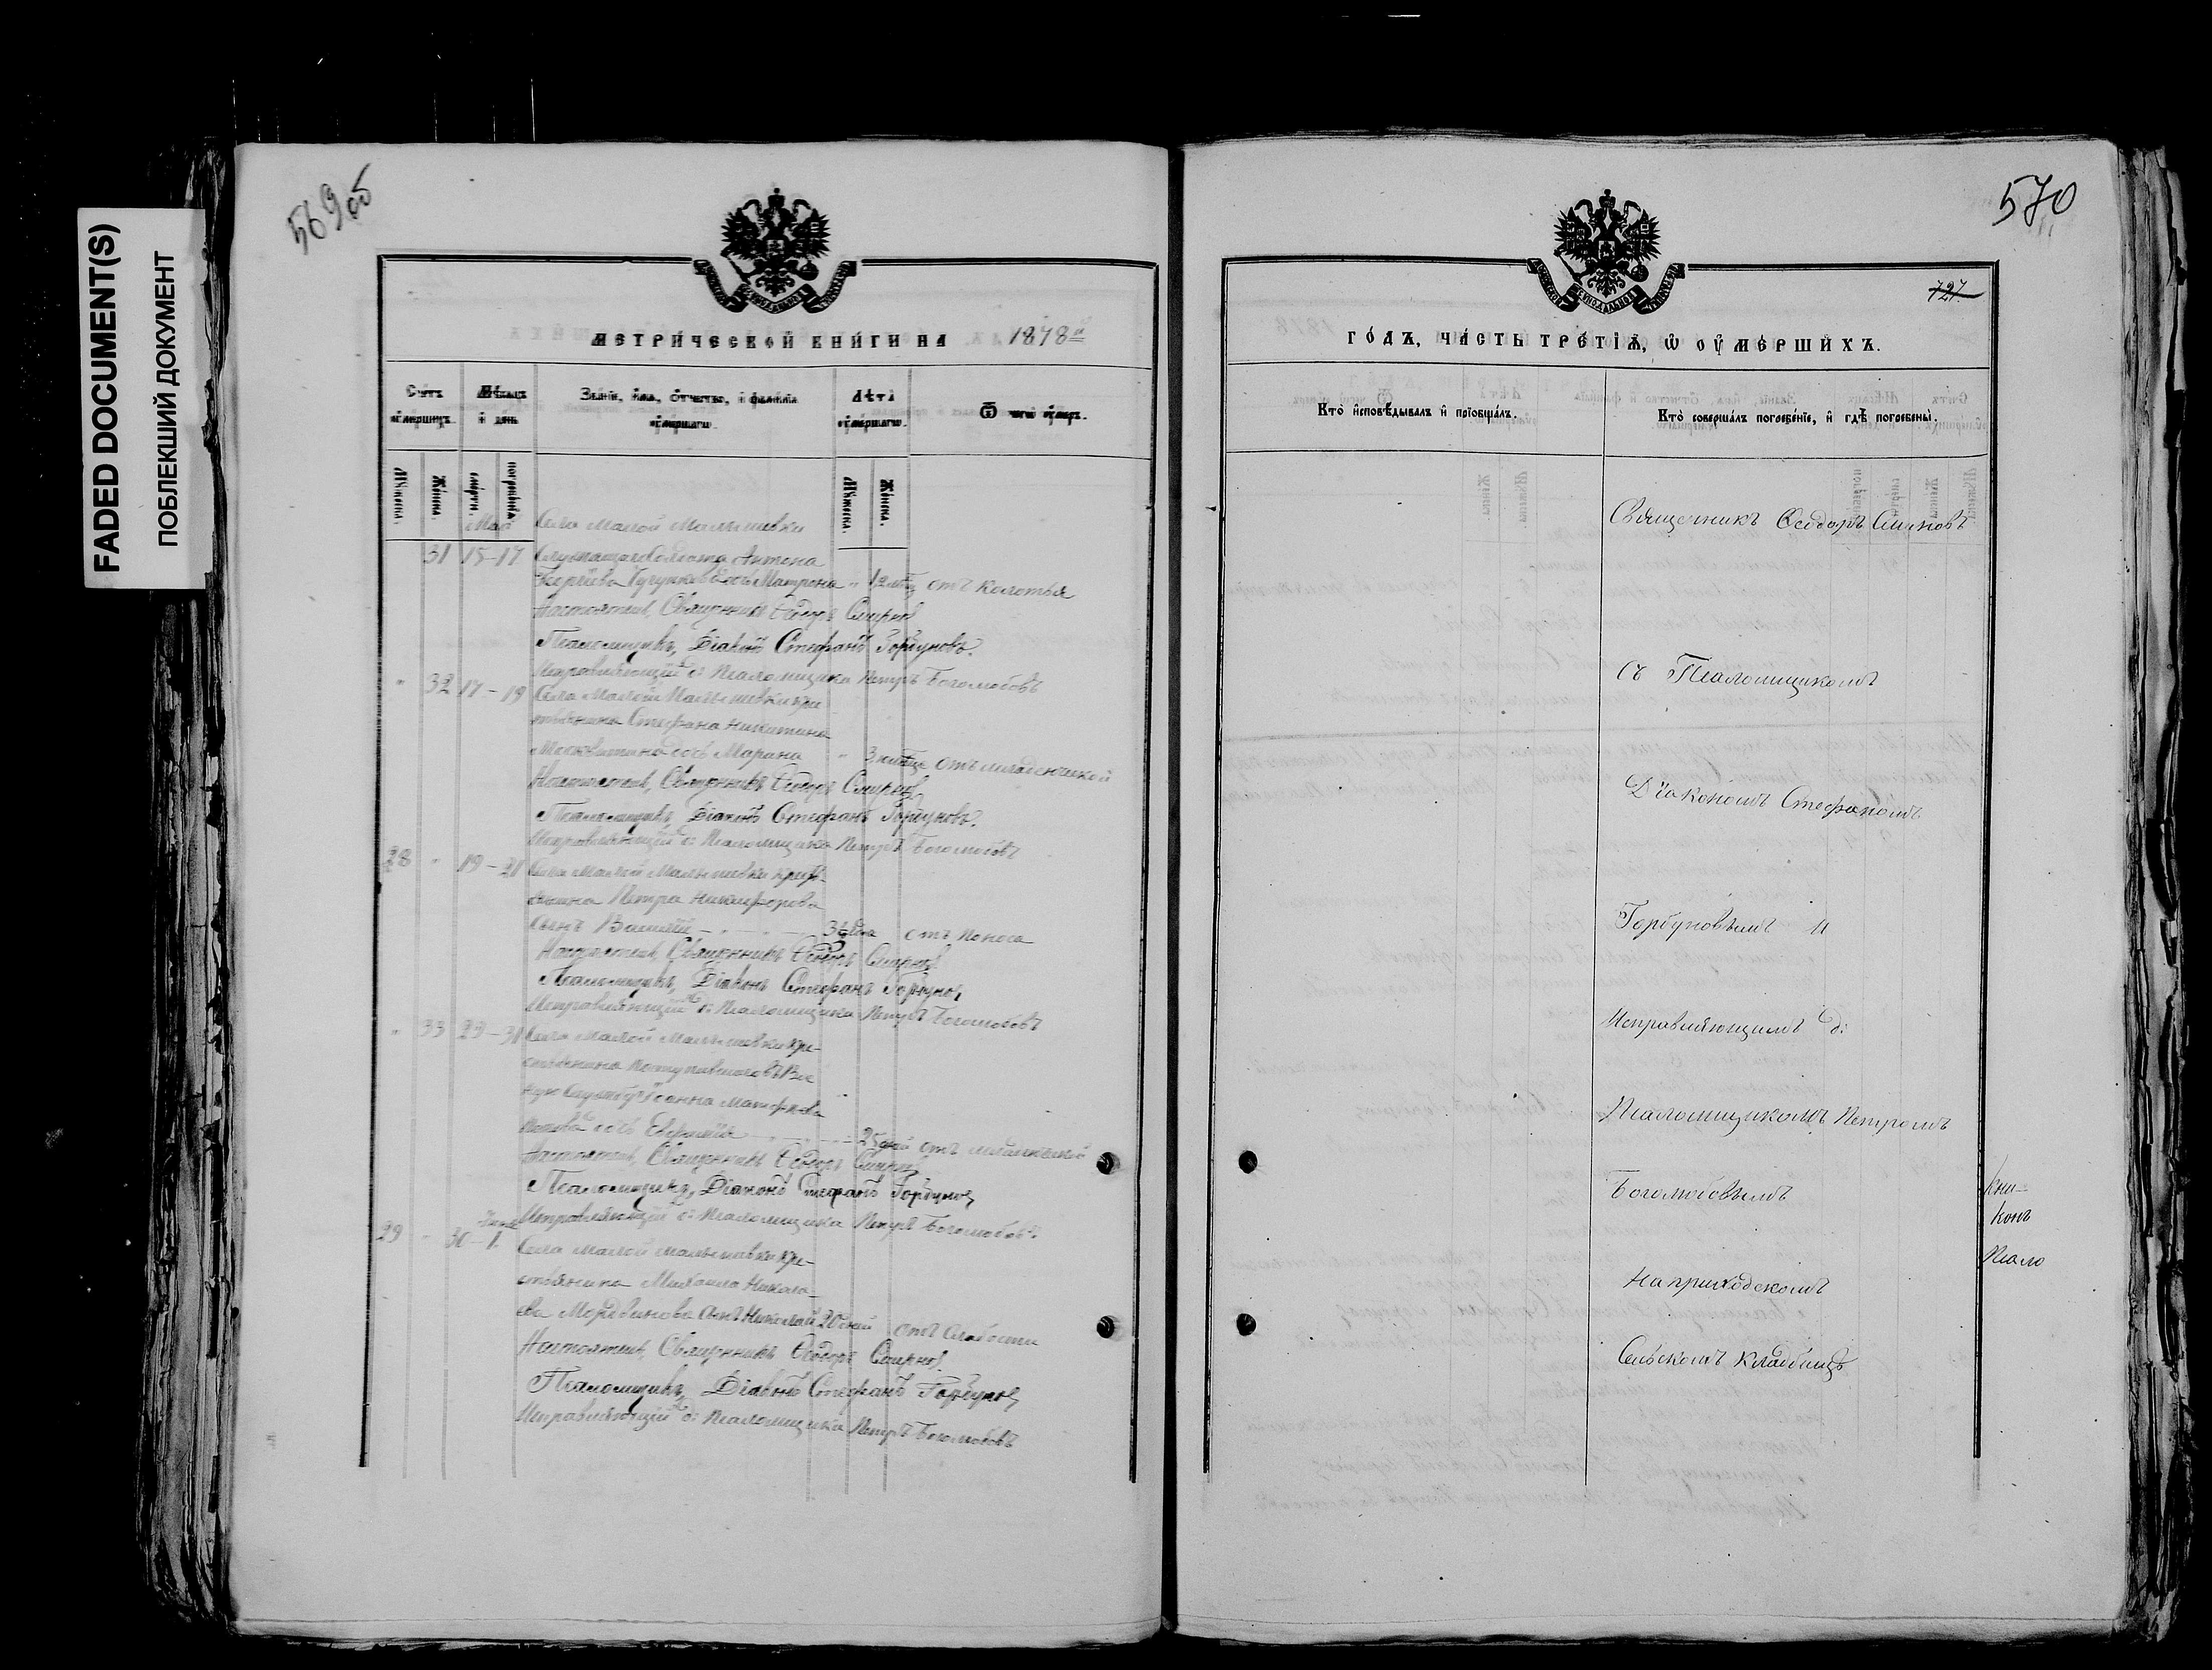 FADED DOCUMENT(S)
ПОБЛЕКШИЙ ДОКУМЕНТ
569об
МЕТРИЧЕСКОЙ КНИГИ НА 1878й
Счетъ умершихъ.
Мѣсяцъ и день
Званіе, имя, отчество, и фамилія умершаго.
Лѣта умершаго.
Ѿ чего умеръ.
Мужеска.
Женска.
смерти.
погребенія
Мужеска.
Женска.
Май
Села Малой Малышевки
31 15-17 Солдата Антона
дочь Матрона отъ колотья
Настоятель, Священникъ Ѳеодоръ Смирновъ
Псаломщикъ, Діаконъ Стефанъ Горбуновъ.
Исправляющій д: Псаломщика Петръ Боголюбовъ
" 32 17-19 Села Малой Малышевки кре
стьянина Стефана Никитина
дочь Марина " 3 отъ младенческой
Настоятель, Священникъ Ѳеодоръ Смирновъ
Псаломщикъ, Діаконъ Стефанъ Горбуновъ.
Исправляющій д: Псаломщика Петръ Боголюбовъ
28 " 19-21 Села Малой Малышевки крест
янина Петра Никифорова
сынъ Василій отъ поноса
Настоятель, Священникъ Ѳеодоръ Смирновъ
Псаломщикъ, Діаконъ Стефанъ Горбуновъ
Исправляющій д: Псаломщика Петръ Боголюбовъ
" 33 29-31 Села Малой Малышевки кре-
стьянина поступившаго въ Вое
ную службу Іоанна
дочь Евфимія 25 дней отъ младенческой
Настоятель, Священникъ Ѳеодоръ Смирновъ
Псаломщикъ, Діаконъ Стефанъ Горбуновъ
Исправляющій д: Псаломщика Петръ Боголюбовъ.
29 " 30-1. Села Малой Малышевки кре-
стьянина Михаила Никола-
ева Мордвинова сынъ Николай 20 дней отъ слабости
Настоятель, Священникъ Ѳеодоръ Смирновъ
Псаломщикъ, Діаконъ Стефанъ Горбуновъ
Исправляющій д: Псаломщика Петръ Боголюбовъ
570
727
ГОДЪ, ЧАСТЬ ТРЕТІЯ, Ѡ ОУМЕРШИХЪ.
Кто исповѣдывалъ и пріобщалъ.
Кто совершалъ погребеніе, и гдѣ погребены.
Священникъ Ѳеодоръ Смирновъ
съ Псаломщикомъ
Діакономъ Стефаномъ
Горбуновымъ и
Исправляющимъ д:
Псаломщикомъ Петромъ
Боголюбовымъ
на приходскомъ
Сельскомъ кладбищѣ
кни-
конъ
Псало